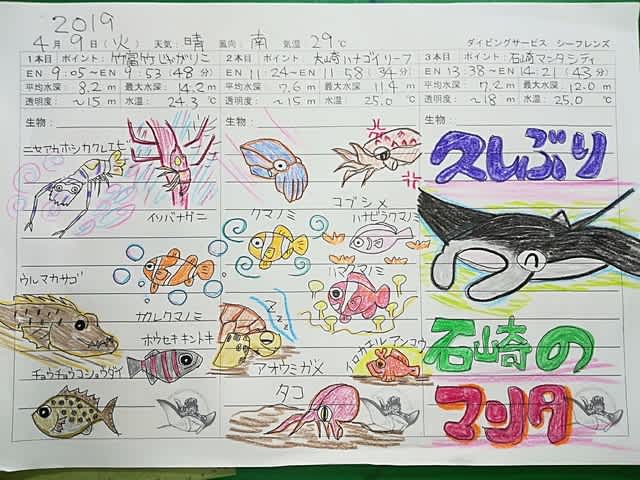 2019
4月9日(火) 天気:晴 風向:南 気温29℃
ダイビングサービス シーフレンズ
1本目 ポイント:竹富竹じゃがりこ
EN 9:05〜EN 9:53(48分)
平均水深:8.2m 最大水深:14.2m
透明度:〜15m 水温:24.3℃
生物:
ニセアカホシカクレエビ
イソバナガニ
ウルマカサゴ
カクレクマノミ
ホウセキキントキ
チョウチョウコショウダイ
2本目 ポイント:大崎ハナゴイリーフ
EN 11:24〜EN 11:58(34分)
平均水深:7.6m 最大水深:11.4m
透明度:〜15m 水温:25.0℃
生物:
コブシメ
クマノミ
ハナビラクマノミ
ハマクマノミ
zzz
アオウミガメ
イロカエルアンコウ
タコ
3本目 ポイント:石崎マンタシティ
EN 13:38〜EN 14:21(43分)
平均水深:7.2m 最大水深:12.0m
透明度:〜18m 水温:25.0℃
生物:
久しぶり
石崎の
マンタ